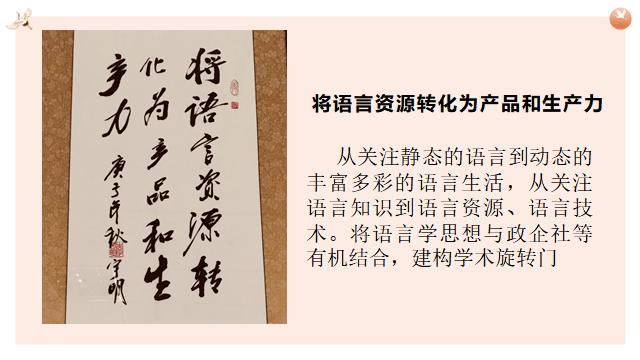 将语言资源转
化为产品和生
产力
庚子年秋宇明
将语言资源转化为产品和生产力
从关注静态的语言到动态的
丰富多彩的语言生活，从关注
语言知识到语言资源、语言技
术。将语言学思想与政企社等
有机结合，建构学术旋转门